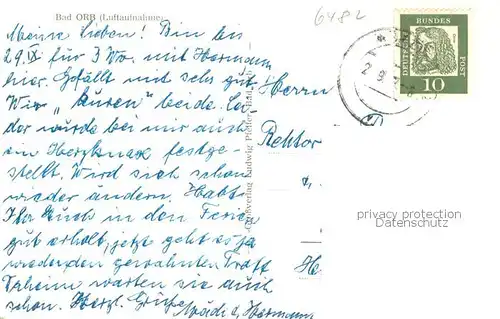 Bad ORB (Luftaufnahme)
6482
Meine Lieben! Bin bis
29.IX für 3 Wo. mit Hermann
hier. Gefällt mit sehr gut
Wir "kuren" beide. Lei-
der wurde bei mir auch
ein Herzknax festge-
stellt. Wird sich schon
wieder ändern. Habt
Ihr Euch in den Ferien
gut erholt, jetzt geht es ja
wieder den gewohnten Trott
Daheim warten sie auch
schon. Herzl. Grüße
u. Hermann
Herrn
Rektor
Cramerverlag Ludwig
DEUTSCHE
BUNDES
POST
10
privacy protection
Datenschutz